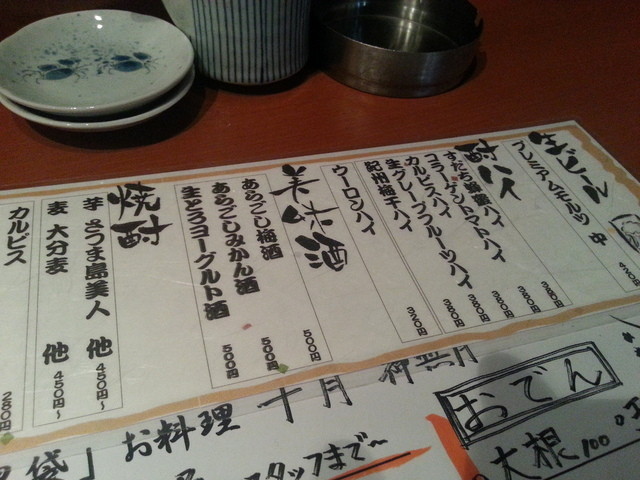 生ビール
プレミアムモルツ 中
酎ハイ
すだち蜂蜜ハイ 380円
コラーゲントマトハイ 380円
カルピスハイ 380円
生グレープフルーツハイ 380円
紀州梅干ハイ 380円
ウーロンハイ 320円
美味酒
あらごし梅酒 500円
あらごしみかん酒 500円
生とろヨーグルト酒 500円
焼酎
芋 さつま島美人 他 450円～
麦 大分麦 他 450円～
カルピス 250円
おでん
大根 100
十月 神無月
お料理
スタッフまで～
袋」